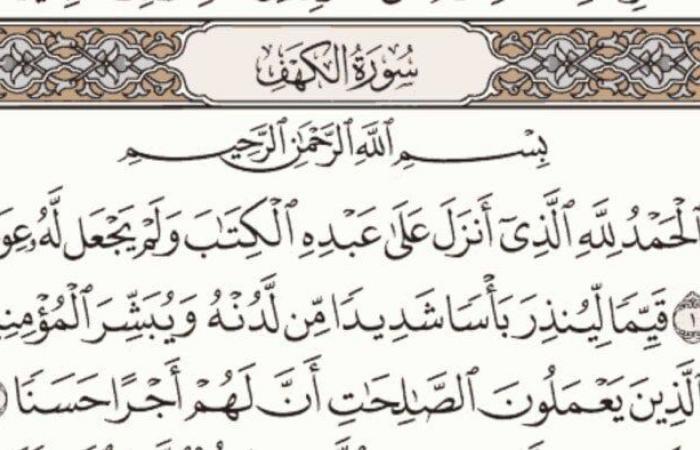 سُورَةُ الكَهْفِ
بِسْمِ ٱللَّهِ ٱلرَّحْمَٰنِ ٱلرَّحِيمِ
ٱلْحَمْدُ لِلَّهِ ٱلَّذِىٓ أَنزَلَ عَلَىٰ عَبْدِهِ ٱلْكِتَٰبَ وَلَمْ يَجْعَل لَّهُۥ
١ قَيِّمًا لِّيُنذِرَ بَأْسًا شَدِيدًا مِّن لَّدُنْهُ وَيُبَشِّرَ
ٱلَّذِينَ يَعْمَلُونَ ٱلصَّٰلِحَٰتِ أَنَّ لَهُمْ أَجْرًا حَسَنًا